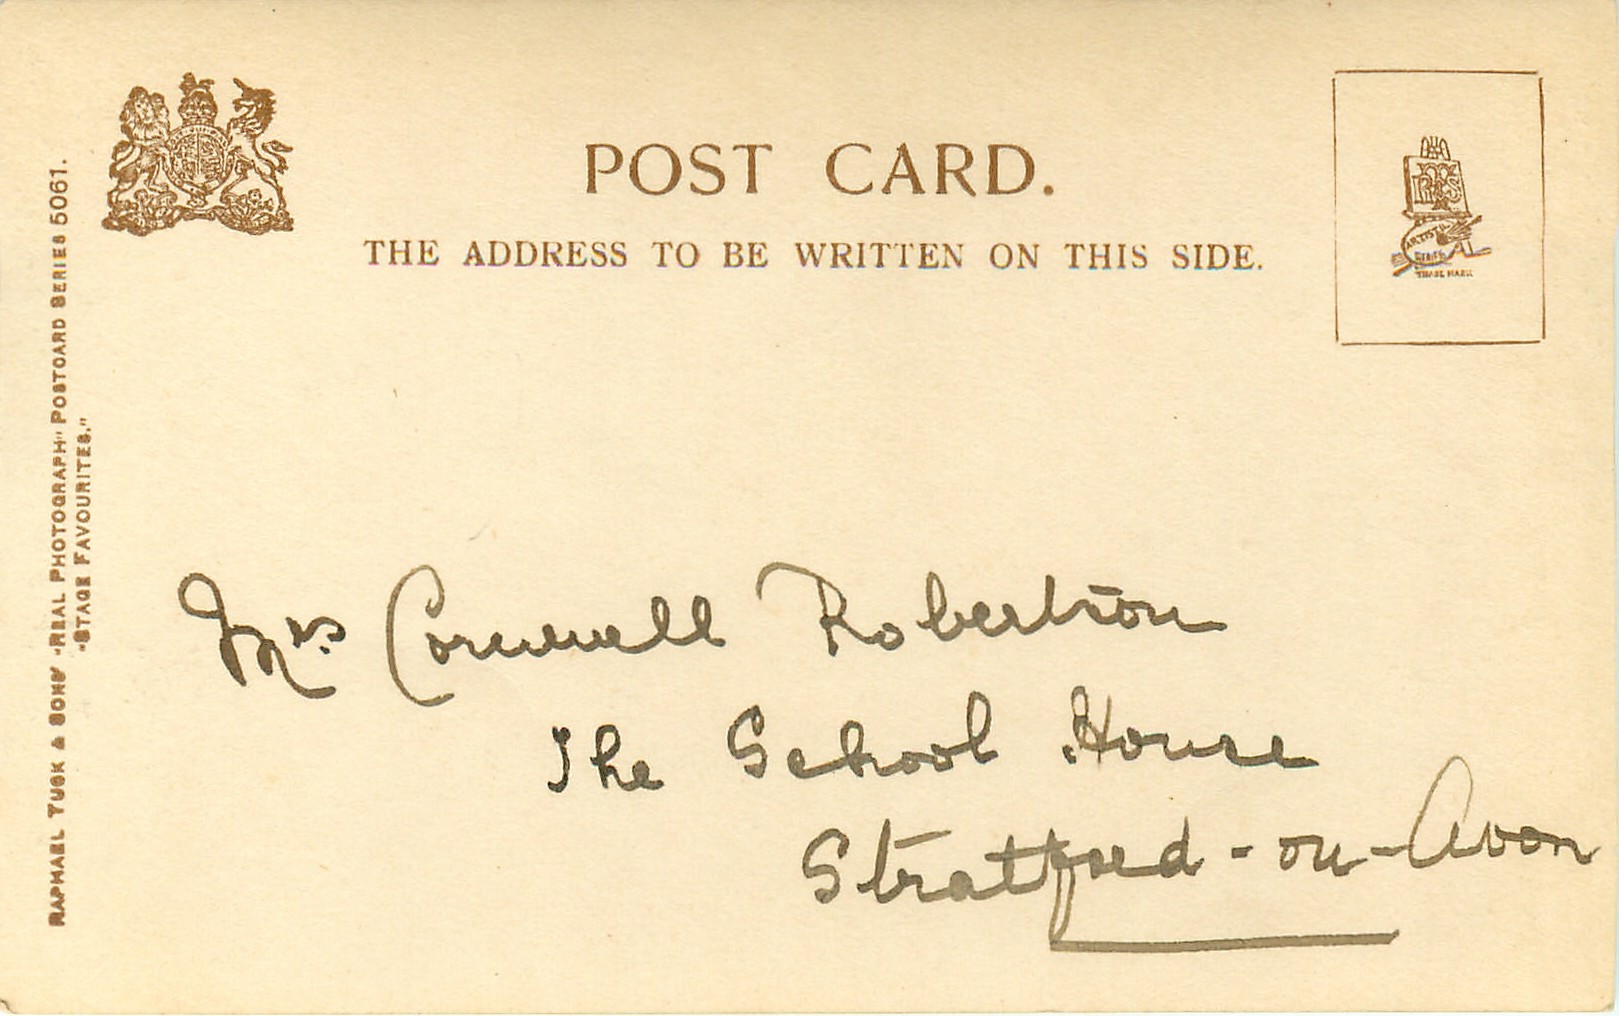 POST CARD.
THE ADDRESS TO BE WRITTEN ON THIS SIDE.
RTS
ARTISTIC
SERIES
TRADE MARK
RAPHAEL TUCK & SONS' "REAL PHOTOGRAPH" POSTCARD SERIES 5061.
"STAGE FAVOURITES."
Mrs Cornwell Robertson
The School House
Stratford-on-Avon